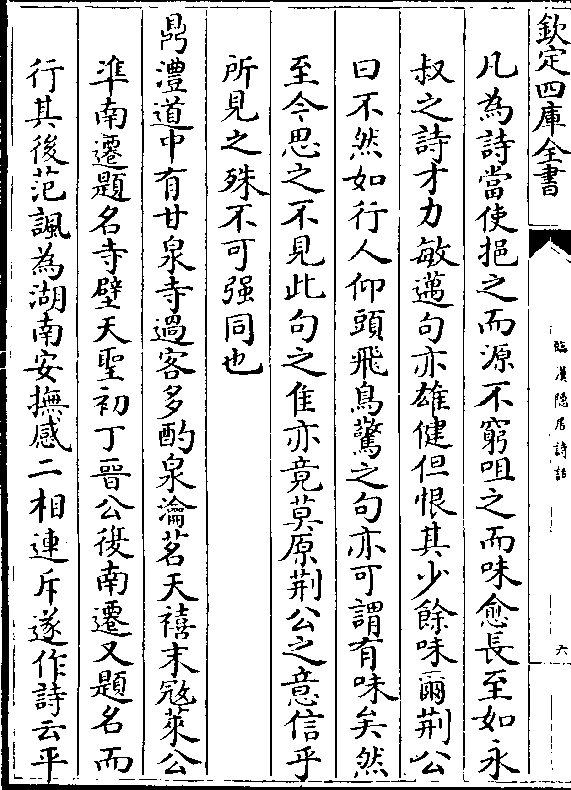 欽定四庫全書
臨漢隱居詩話
六
凡為詩當使挹之而源不窮咀之而味愈長至如永
叔之詩才力敏邁句亦雄健但恨其少餘味爾荆公
曰不然如行人仰頭飛鳥驚之句亦可謂有味矣然
至今思之不見此句之佳亦竟莫原荆公之意信乎
所見之殊不可强同也
鼎澧道中有甘泉寺過客多酌泉瀹茗天禧末寇萊公
準南遷題名寺壁天聖初丁晉公復南遷又題名而
行其後范諷為湖南安撫感二相連斥遂作詩云平